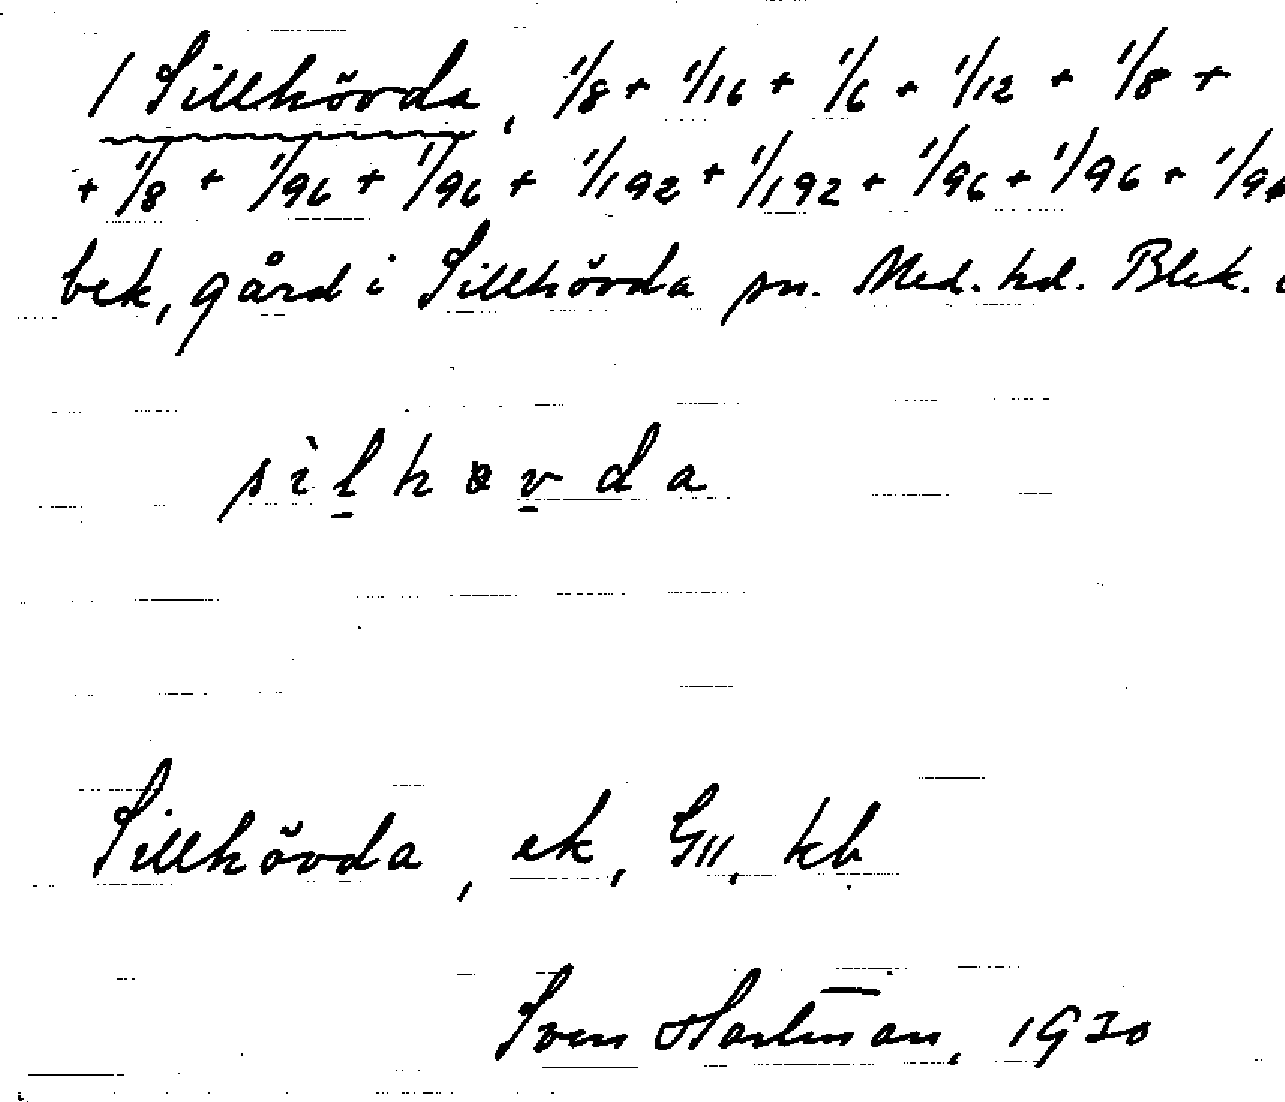 1 Sillhövda, 1/8 + 1/16 + 1/6 + 1/12 + 1/8 +
+ 1/8 + 1/96 + 1/96 + 1/192 + 1/192 + 1/96 + 1/96 + 1/96
bek, gård i Sillhövda sn. Med. hd. Blek.
sìlhøvda
Sillhövda, ek, GII, kb
Sven Hartman̄, 1930